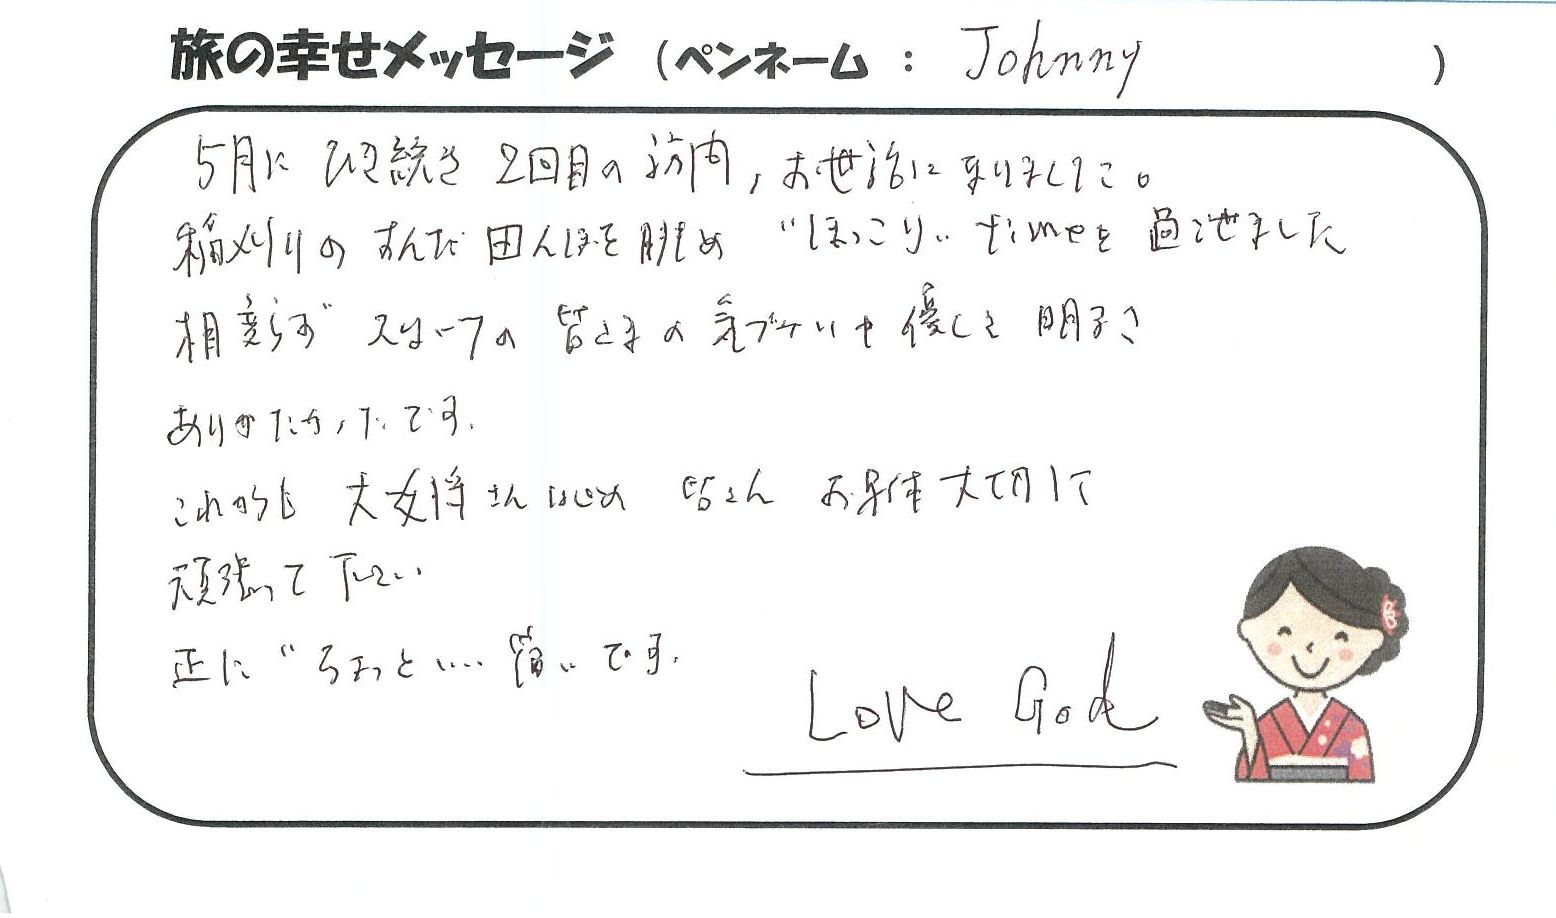 旅の幸せメッセージ（ペンネーム：Johnny）
5月に ひき続き 2回目の訪問，お世話になりました。
稲刈りの すんだ 田んぼを 眺め “ほっこり” timeを 過ごせました
相変らず スタッフの 皆さまの 気づかいや 優しさ 明るさ
ありがたかったです.
これからも 大女将さんはじめ 皆さん お身体 大切にして
頑張って 下さい
正に “ちょっと…” です.
Love God